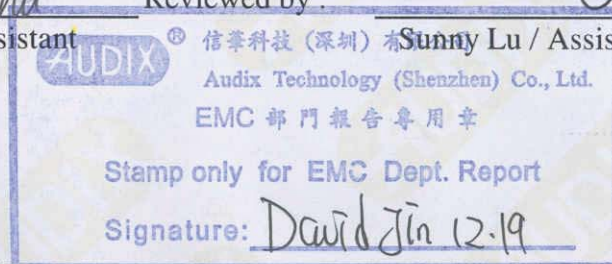 Reviewed by :
sistant
Sunny Lu / Assis
AUDIX ® 信華科技 (深圳) 有
Audix Technology (Shenzhen) Co., Ltd.
EMC 部門報告專用章
Stamp only for EMC Dept. Report
Signature: David Jin 12.19